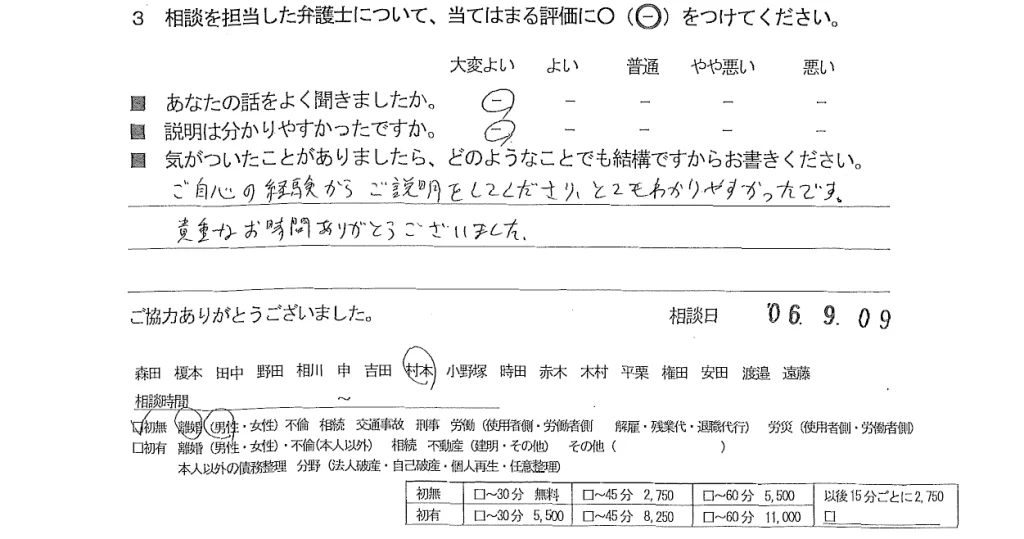 3 相談を担当した弁護士について、当てはまる評価に○(㊀)をつけてください。
大変よい よい 普通 やや悪い 悪い
■ あなたの話をよく聞きましたか。 － － － － －
■ 説明は分かりやすかったですか。 － － － － －
■ 気がついたことがありましたら、どのようなことでも結構ですからお書きください。
ご自心の経験からご説明をしてくださり、とてもわかりやすかったです。
貴重なお時間ありがとうございました。
ご協力ありがとうございました。 相談日 '06. 9. 09
森田 榎本 田中 野田 相川 申 吉田 村本 小野塚 時田 赤木 木村 平栗 権田 安田 渡邉 遠藤
相談時間 ～
□初無 離婚 (男性・女性) 不倫 相続 交通事故 刑事 労働 (使用者側・労働者側 解雇・残業代・退職代行) 労災 (使用者側・労働者側)
□初有 離婚 (男性・女性)・不倫(本人以外) 相続 不動産 (建明・その他) その他 ( )
本人以外の債務整理 分野 (法人破産・自己破産・個人再生・任意整理)
初無 □～30分 無料 □～45分 2,750 □～60分 5,500 以後15分ごとに2,750
初有 □～30分 5,500 □～45分 8,250 □～60分 11,000 □